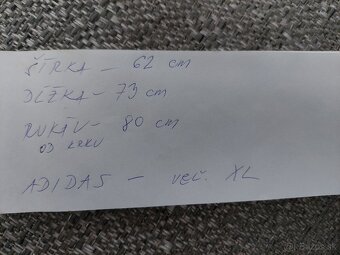 ŠÍRKA - 62 cm
DĹŽKA - 73 cm
RUKÁV - 80 cm
OD KRKU
ADIDAS - veľ. XL